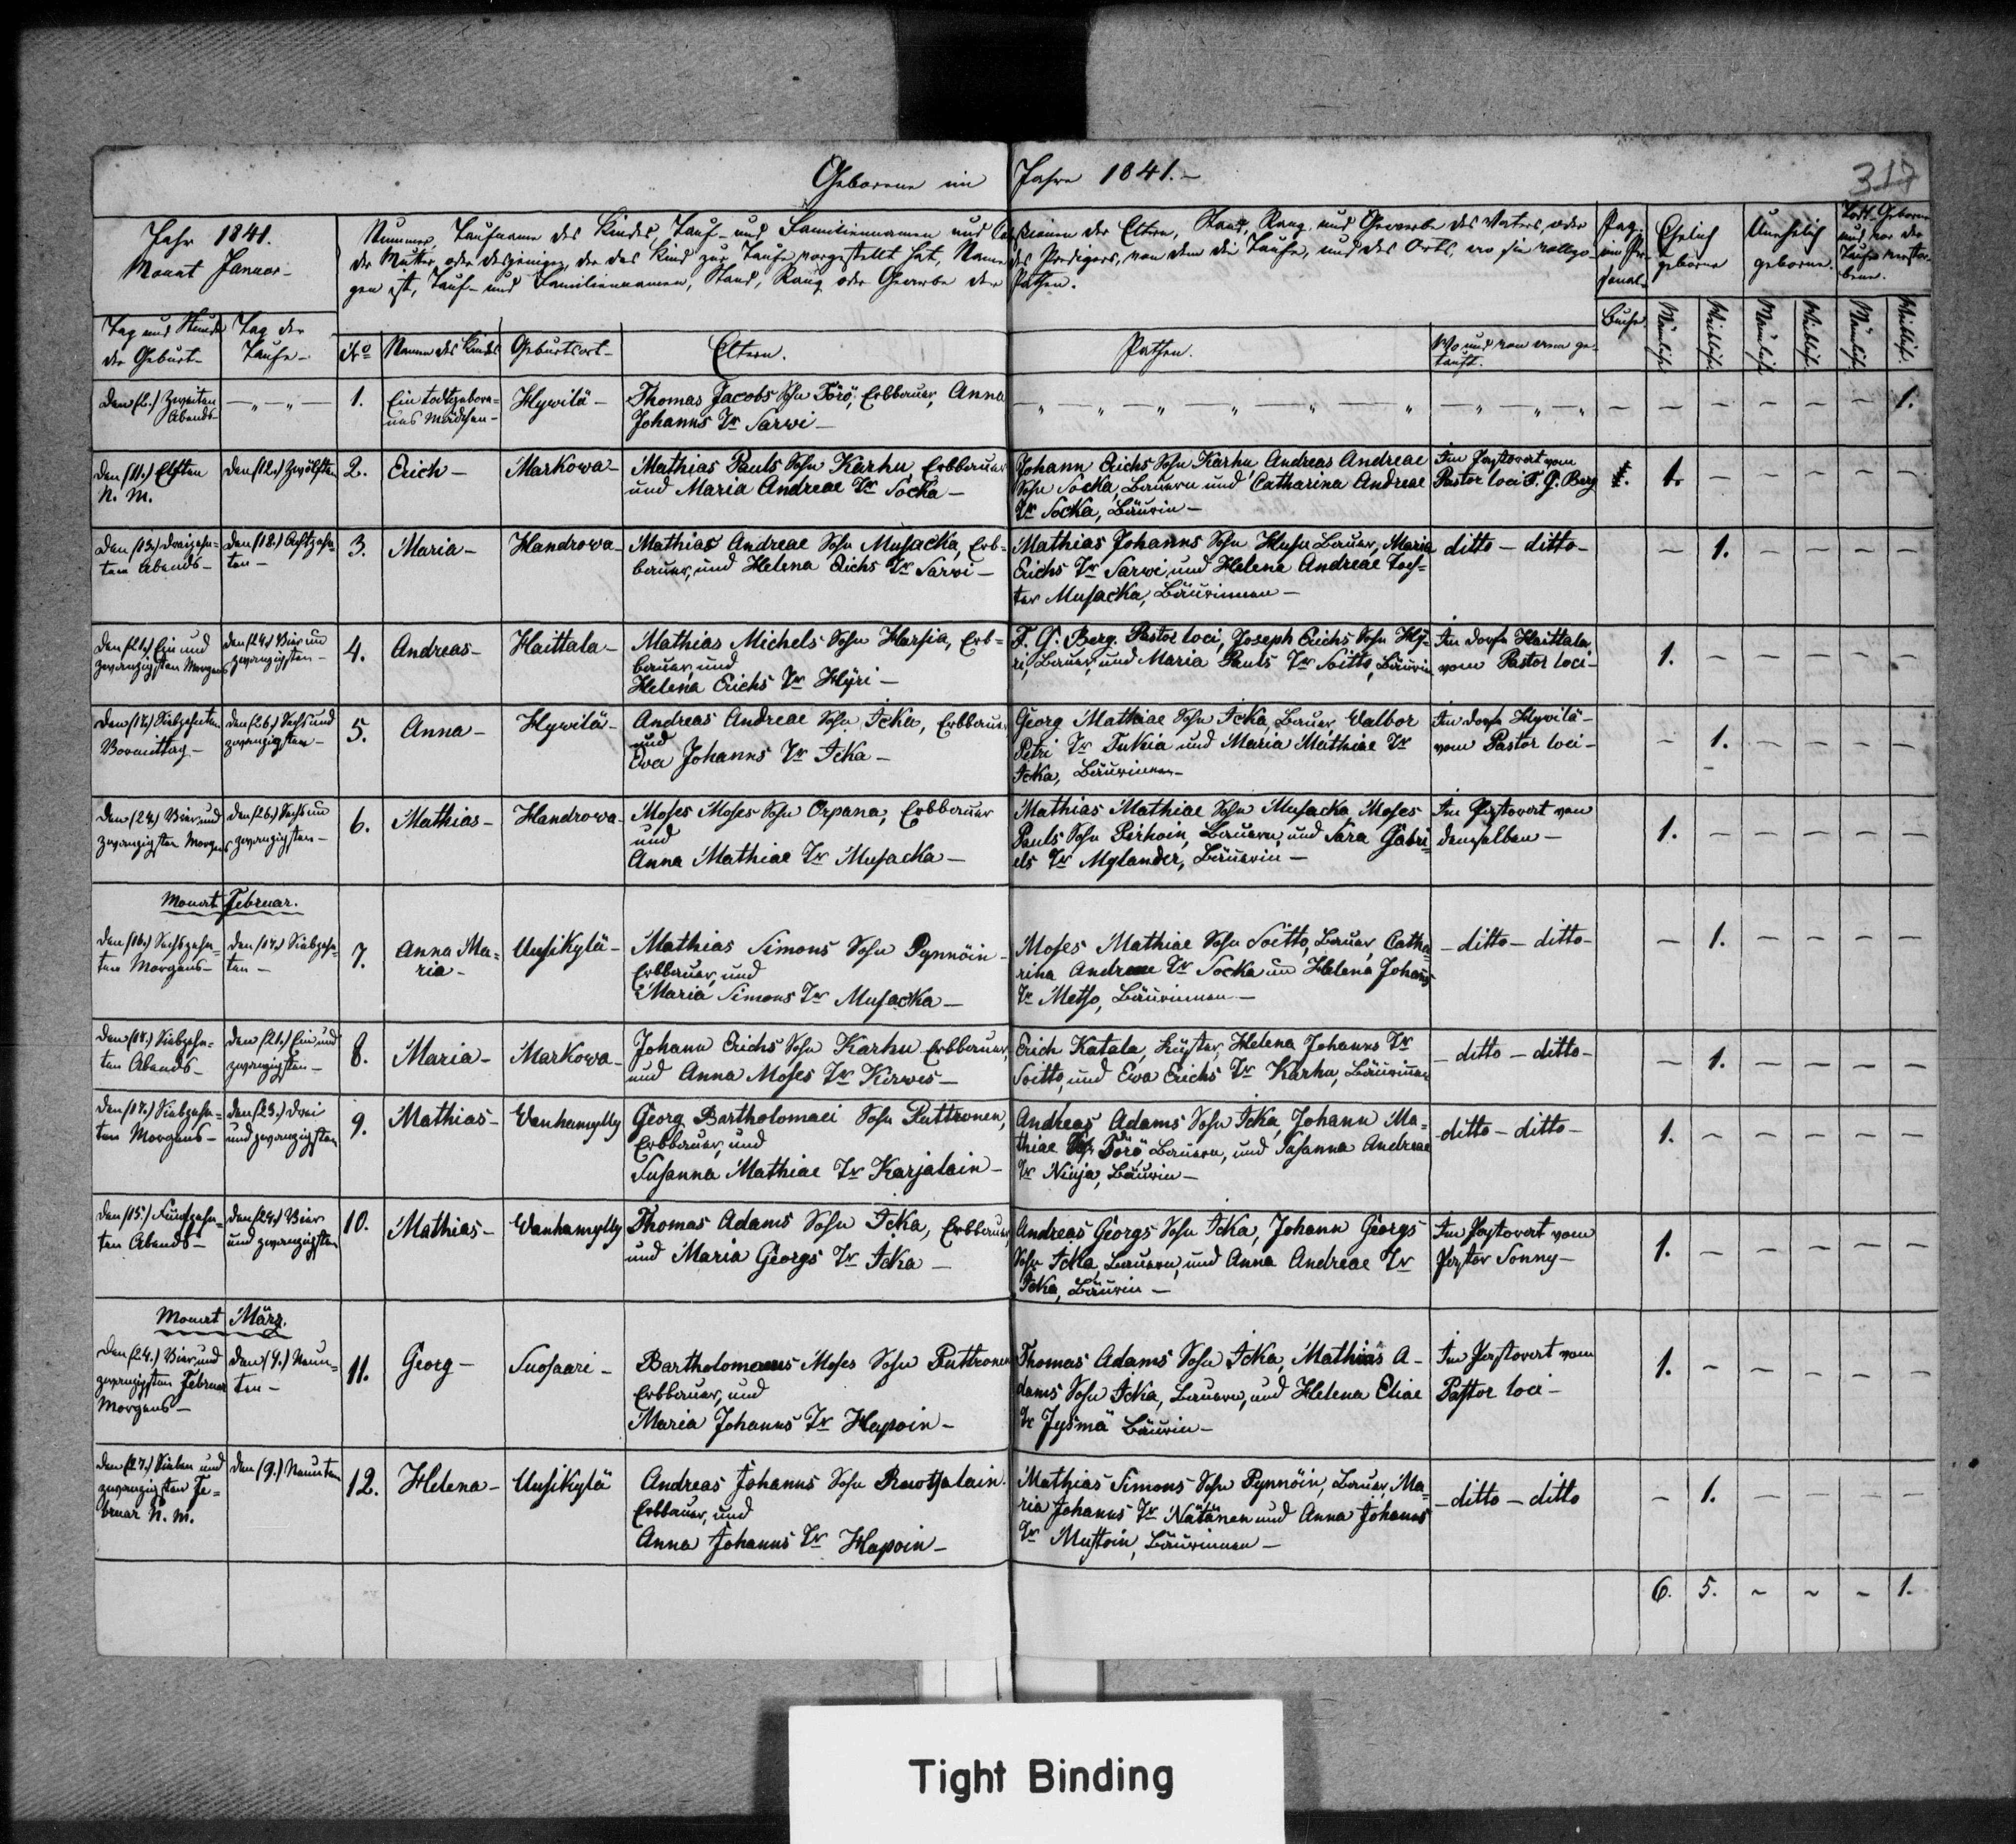 Geborene im Jahre 1841.-
317
Jahr 1841.
Monat Januar-
Nummer, Taufname des Kindes Tauf- und Familiennamen und Con
der Mutter, oder desjenigen, der das Kind zur Taufe vorgestellt hat, Name
gen ist, Tauf- und Familiennamen, Stand, Rang oder Gewerbe der
fessionen der Eltern, Stand, Rang und Gewerbe des Vaters, oder
des Predigers, von dem die Taufe, und des Orts, wo sie vollzo-
Pathen.
Pag.
im Per-
sonal-
Buche
Ehelich
geborne
Unehelich
geborne.
Todt-Geborne
und vor der
Taufe verstor-
bene.
Tag und Stunde
der Geburt-
Tag der
Taufe-
No
Namen des Kindes
Geburtsort-
Eltern.
Pathen.
Wo und von wem ge-
tauft.
Mänlich
Weiblich
Mänlich
Weiblich
Mänlich
Weiblich.
Den (2.) Zweiten
Abends-
- „ - „ -
1.
Ein todtgebore-
nes Mädchen-
Hywilä-
Thomas Jacobs Sohn Törö, Erbbauer, Anna
Johanns Tr Sarwi-
- „ - „ - „ - „ - „ - „ - „
- „ - „ - „
- - - - - - 1.
Den (11.) Elften
N. M.
Den (12.) Zwölften
2.
Erich-
Markowa-
Mathias Pauls Sohn Karhu Erbbauer
und Maria Andreae Tr Socka-
Johann Erichs Sohn Karhu, Andreas Andreae
Sohn Socka, Bauern und Catharina Andreae
Tr Socka, Bäurin-
Im Pastorat vom
Pastor loci F. G. Berg
1. - - - - -
Den (13.) Dreizehn-
ten Abends-
Den (18.) Achtzehn-
ten-
3.
Maria-
Handrowa
Mathias Andreae Sohn Musacka, Erb-
bauer, und Helena Erichs Tr Sarwi-
Mathias Johanns Sohn Husu Bauer, Maria
Erichs Tr Sarwi, und Helena Andreae Toch-
ter Musacka, Bäurinnen-
ditto - ditto-
- 1. - - - -
Den (21.) Ein und
zwanzigsten Morgens
Den (24.) Vier und
zwanzigsten-
4.
Andreas-
Haittala-
Mathias Michels Sohn Harsia, Erb-
bauer, und
Helena Erichs Tr Hÿri-
F. G. Berg. Pastor loci, Joseph Erichs Sohn Hÿ-
ri, Bauer, und Maria Pauls Tr Soitto, Bäurin
Im Dorfe Haittala,
vom Pastor loci-
1. - - - - -
Den (17.) Siebzehnten
Vormittag-
Den (26.) Sechs und
zwanzigsten-
5.
Anna-
Hywilä-
Andreas Andreae Sohn Icka, Erbbauer
und
Ewa Johanns Tr Icka-
Georg Mathiae Sohn Icka, Bauer, Walbor
Petri Tr Tukia und Maria Mathiae Tr
Icka, Bäurinnen-
Im Dorfe Hywilä-
vom Pastor loci-
- 1. - - - -
Den (24.) Vier und
zwanzigsten Morgens
Den (26.) Sechs und
zwanzigsten-
6.
Mathias-
Handrowa-
Moses Moses Sohn Orpana, Erbbauer
und
Anna Mathiae Tr Musacka-
Mathias Mathiae Sohn Musacka, Moses
Pauls Sohn Pirhoin, Bauern, und Sara Gabri-
els Tr Mylander, Bäuerin-
Im Pastorat von
demselben-
1. - - - - -
Monat Februar.
Den (16.) Sechszehn-
ten Morgens-
Den (17.) Siebzehn-
ten-
7.
Anna Ma-
ria-
Uusikylä-
Mathias Simons Sohn Pynnöin-
Erbbauer, und
Maria Simons Tr Musacka-
Moses Mathiae Sohn Soitto, Bauer, Catha-
rina Andreae Tr Socka und Helena Johanns
Tr Metso, Bäurinnen-
- ditto - ditto-
- 1. - - - -
Den (17.) Siebzehn-
ten Abends-
Den (21.) Ein und
zwanzigsten-
8.
Maria-
Markowa-
Johann Erichs Sohn Karhu Erbbauer,
und Anna Moses Tr Kirwes-
Erich Katala, Küster, Helena Johanns Tr
Soitto, und Ewa Erichs Tr Karhu, Bäurinnen
- ditto - ditto-
- 1. - - - -
Den (17.) Siebzehn-
ten Morgens-
Den (23.) Drei
und zwanzigsten
9.
Mathias-
Wanhamylly
Georg Bartholomaei Sohn Puttronen,
Erbbauer, und
Susanna Mathiae Tr Karjalain-
Andreas Adams Sohn Icka, Johann Ma-
thiae Sohn Törö, Bauern, und Susanna Andreae
Tr Ninja, Bäurin-
- ditto - ditto-
1. - - - - -
Den (15.) Fünfzehn-
ten Abends-
Den (24.) Vier
und zwanzigsten
10.
Mathias-
Wanhamylly
Thomas Adams Sohn Icka, Erbbauer,
und Maria Georgs Tr Icka-
Andreas Georgs Sohn Icka, Johann Georgs
Sohn Icka, Bauern, und Anna Andreae Tr
Icka, Bäurin-
Im Pastorat vom
Pastor Sonny-
1. - - - - -
Monat März.
Den (24.) Vier und
zwanzigsten Februar
Morgens-
Den (9.) Neun-
ten-
11.
Georg-
Suosaari-
Bartholomaeus Moses Sohn Puttronen
Erbbauer, und
Maria Johanns Tr Hapoin-
Thomas Adams Sohn Icka, Mathias A-
dams Sohn Icka, Bauern, und Helena Eliae
Tr Jysmä Bäurin-
Im Pastorat vom
Pastor loci-
1. - - - - -
Den (27.) Sieben und
zwanzigsten Fe-
bruar N. M.
Den (9.) Neunten
12.
Helena-
Uusikylä
Andreas Johanns Sohn Ruotsalain.
Erbbauer, und
Anna Johanns Tr Hapoin-
Mathias Simons Sohn Pynnöin, Bauer, Ma-
ria Johanns Tr Nätänen und Anna Johanns
Tr Mustoin, Bäurinnen-
- ditto - ditto
- 1. - - - -
6. 5. ~ ~ ~ 1.
Tight Binding